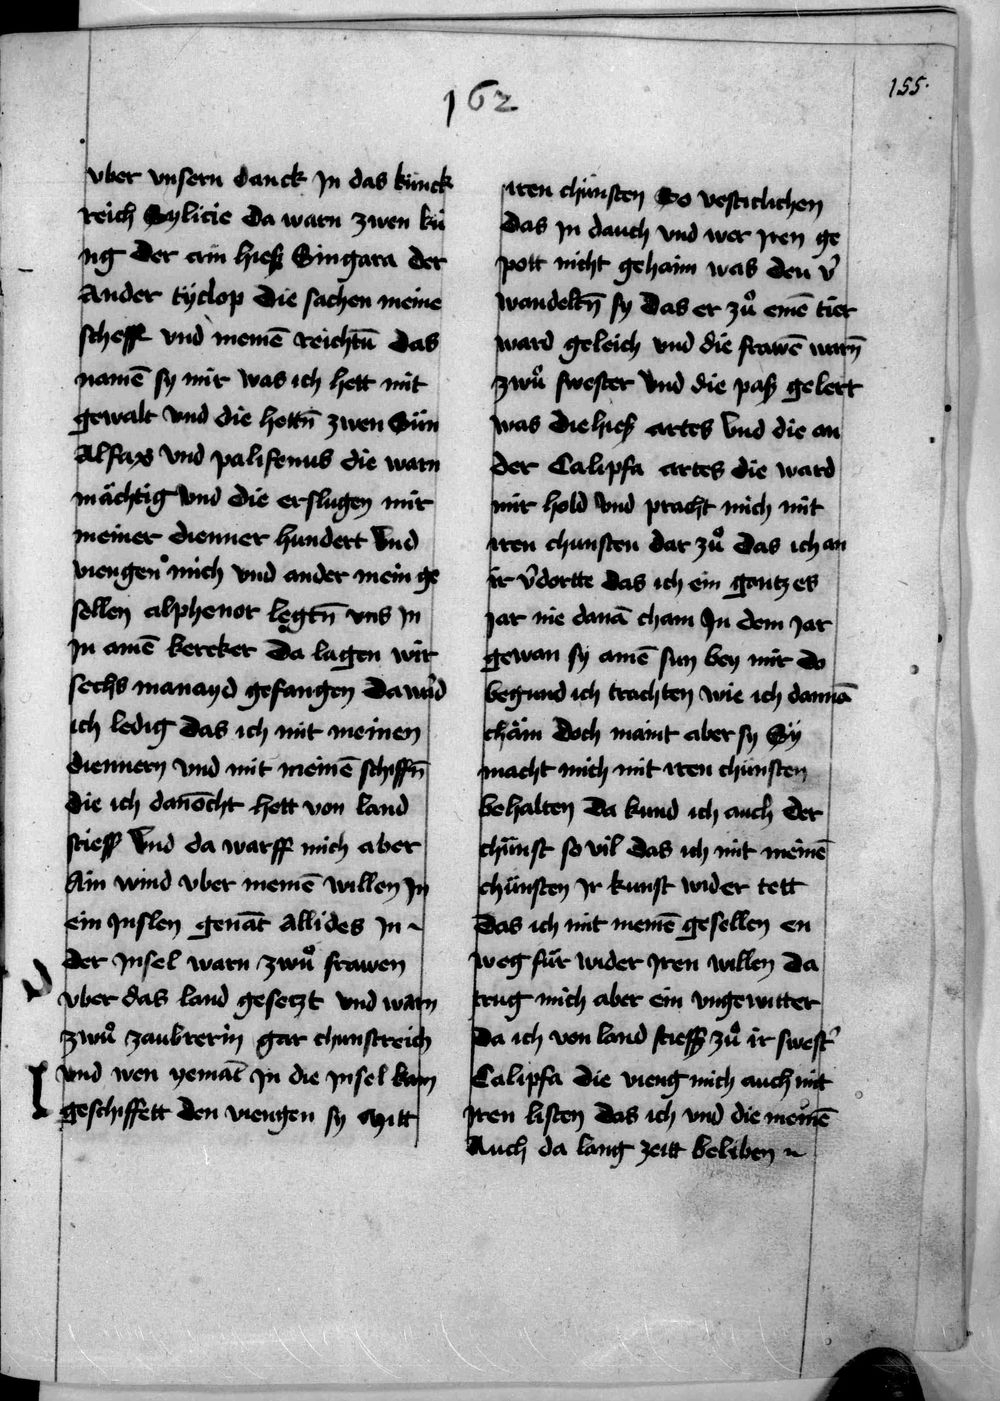 162
155.
vber vnsern danck Jn das künck
reich Sylicie Da warn zwen kü
ng Der ain hieß Singara der
Ander tÿclop Die sachen meine
scheff vnd meinē reichtū Das
namē sy mir was ich hett mit
gewalt Vnd die hettn̄ zwen Sün
Alfax Vnd palifenus die warn
mächtig Vnd die erslugen mir
meiner dienner hundert Vnd
viengen mich vnd ander mein ge
sellen alphenor legtn̄ vns Jn
Jn ainē kercker Da lagen wir
sechs manayd gefangen Da ward
ich ledig Das ich mit meinen
diennern Vnd mit meinē schiffn̄
die ich danōcht hett von land
stieff Vnd da warff mich aber
Ain wind vber meinē willen Jn
ein Jnslen genāt Allides Jn ~
der Jnsel warn zwuͦ frawen
vber das land gesetzt vnd warn
zwuͦ zaubrerin gar chunstreich
vnd wen yemāt Jn die Jnsel kam
geschiffett den viengen sy Mitt
iren chünsten So vesticlichen
Das Jn dauch vnd wer Jren ge
pott nicht gehaim was den v̉
wandeltn̄ sy Das er zuͦ einē tier
ward geleich vnd die frawē warn̄
zwuͦ swester Vnd die paß gelert
was Die hieß artes Vnd die an
der Calipsa artes die ward
mir hold Vnd pracht mich mit
iren chunsten dar zuͦ Das ich an
ir v̉dortte Das ich ein gantzes
Jar nie danā cham Jn dem Jar
gewan sy ainē sun bey mir Do
begund ich trachten wie ich dannā
chäm Doch maint aber sy Sÿ
macht mich mit iren chünsten
behalten Da kund ich auch der
chünst so vil Das ich mit meinē
chünsten Jr kunst wider tett
Das ich mit meinē gesellen en
weg für wider Jren willen Da
trug mich aber ein vngewitter
Da ich von land stieff zuͦ ir swest̉
Calipsa Die vieng mich auch mit
Jren listen Das ich vnd die meinē
Auch da lang zeitt beliben ~